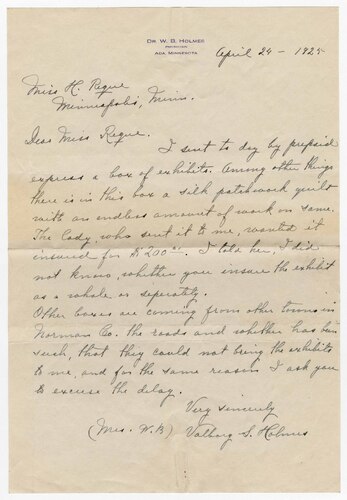 DR. W. B. HOLMES
ADA, MINNESOTA
April 24 - 1925
Miss H. Reque
Minneapolis, Minn.
Dear Miss Reque.
I sent to day by prepaid
express a box of exhibits. Among other things
there is in this box a silk patchwork quilt
with an endless amount of work on same.
The Lady, who sent it to me, wanted it
insured for $200.00. I told her, I did
not know, whether you insure the exhibit
as a whole or seperately.
Other boxes are coming from other towns in
Norman Co. the roads and whether has been
such, that they could not bring the exhibits
to me, and for the same reason I ask you
to excuse the delay.
Very sincerely
(Mrs. W.B) Valborg S. Holmes